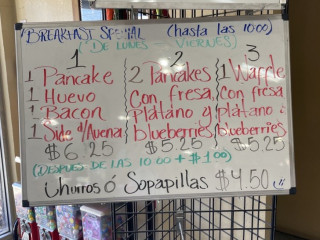 BREAKFAST SPECIAL (hasta las 10:00)
(DE LUNES VIERNES)
1 2 3
1 Pancake 2 Pancakes 1 Waffle
1 Huevo Con fresa, con fresa
1 Bacon Plátano y plátano
1 Side d/Avena blueberries blueberries
$6.25 $5.25 $5.25
(DESPUES DE LAS 10:00 + $1.00)
Churros ó Sopapillas $4.50